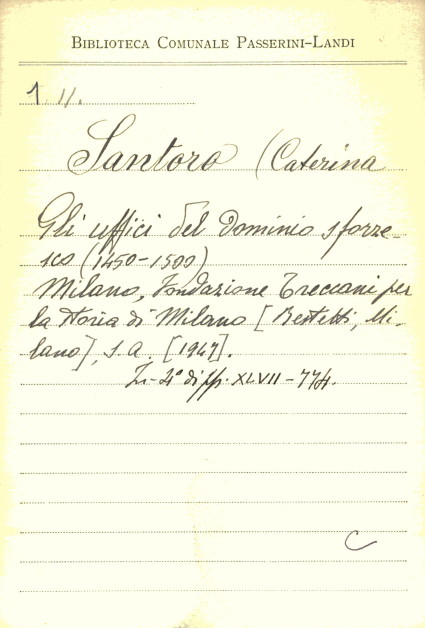 BIBLIOTECA COMUNALE PASSERINI-LANDI
1. II.
Santoro (Caterina
Gli uffici del Dominio sforze-
sco (1450-1500)
Milano, Fondazione Treccani per
la storia di Milano [Bestetti, Mi-
lano], s. a. [1947].
4° di pp. XLVII-774.
C